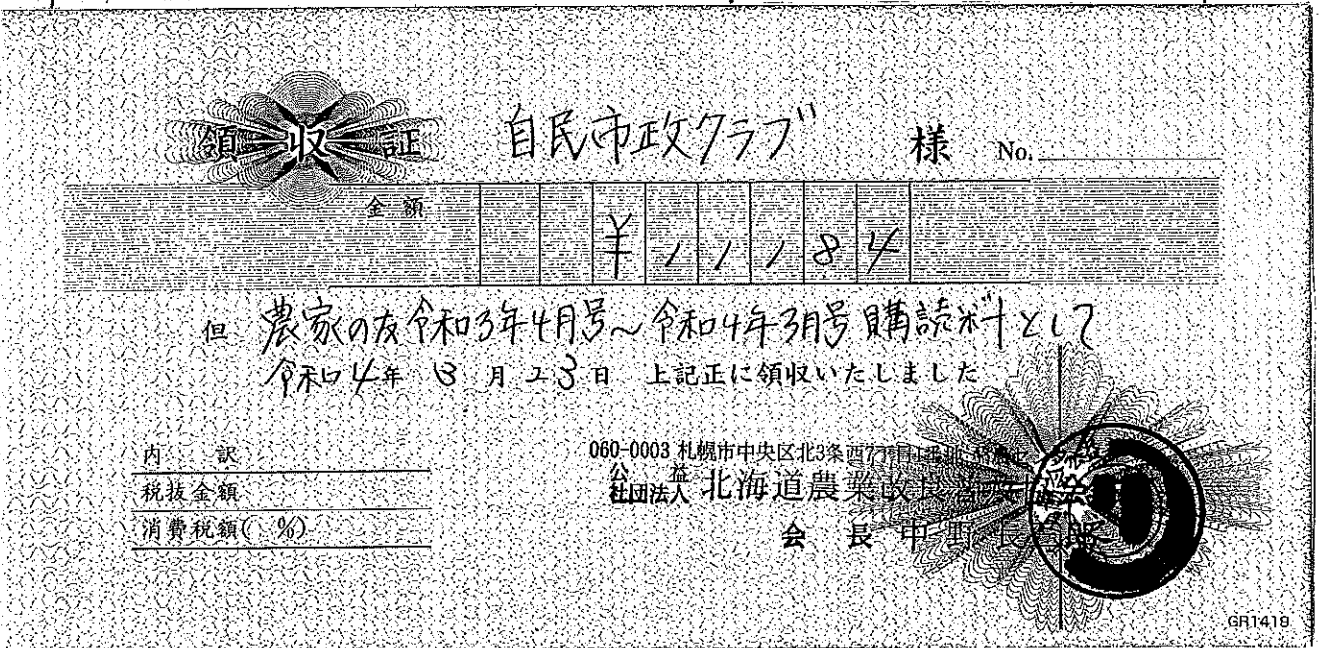 領収証 自民市政クラブ 様 No.
金額 ¥11184
但 農家の友令和3年4月号～令和4年3月号購読料として
令和4年 3月23日 上記正に領収いたしました
内訳
税抜金額
消費税額( %)
060-0003 札幌市中央区北3条西7丁目1番地
公益社団法人 北海道農業改良普及
会長 中野長
GR1419